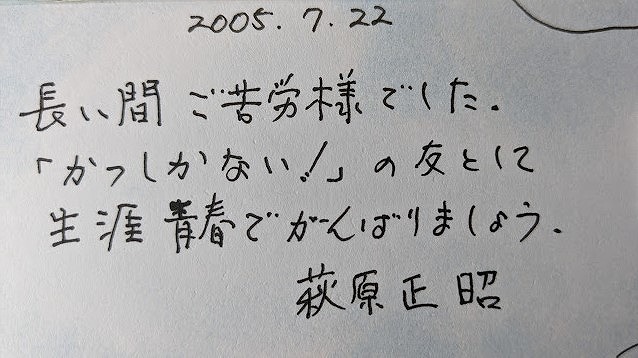 2005.7.22
長い間 ご苦労様でした.
「かっしかない!」の友として
生涯青春でがんばりましょう.
萩原正昭